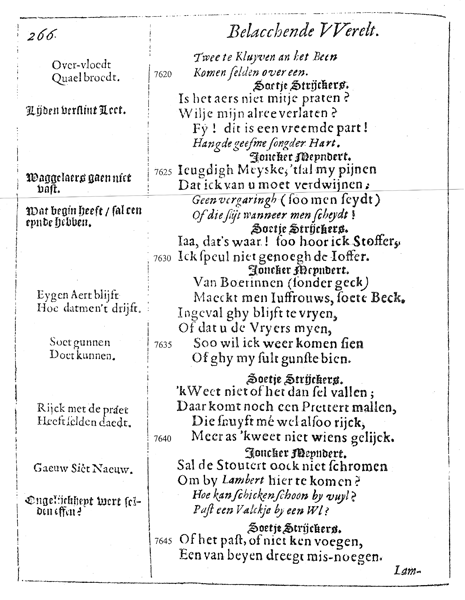 266.
Belacchende VVerelt.
Over-vloedt
Quael broedt.
Twee te Kluyven an het Been
7620 Komen selden over een.
Soetje Strijckers.
Is het aers niet mitje praten?
Lijden verslint Leet.
Wilje mijn alree verlaten?
Fy! dit is een vreemde part!
Hang de geesme songder Hart.
Joncker Meyndert.
7625 Ieugdigh Meyske, 'tsal my pijnen
Waggelaers gaen niet
vast.
Dat ick van u moet verdwijnen;
Geen vergaringh (soo men seydt)
Wat begin heeft / sal een
eynde hebben.
Of die sijt wanneer men scheydt!
Soetje Strijckers.
Iaa, dat's waar! soo hoor ick Stoffer,
7630 Ick speul niet genoegh de Ioffer.
Joncker Meyndert.
Van Boerinnen (sonder geck)
Eygen Aert blijft
Hoe datmen't drijft.
Maeckt men Iuffrouws, soete Beck.
Ingeval ghy blijft te vryen,
Of dat u de Vryers myen,
Soet gunnen
Doet kunnen.
7635 Soo wil ick weer komen sien
Of ghy my sult gunste bien.
Soetje Strijckers.
'k Weet niet of het dan sel vallen;
Rijck met de praet
Heeft selden daedt.
Daar komt noch een Prettert mallen,
Die snuyft mé wel alsoo rijck,
7640 Meer as 'k weet niet wiens gelijck.
Joncker Meyndert.
Gaeuw Siet Naeuw.
Sal de Stoutert oock niet schromen
Om by Lambert hier te komen?
Ongelijckheyt wert sel-
den effen?
Hoe kan schicken schoon by vuyl?
Past een Valckje by een Wl?
Soetje Strijckers.
7645 Of het past, of niet ken voegen,
Een van beyen dreegt mis-noegen.
Lam-